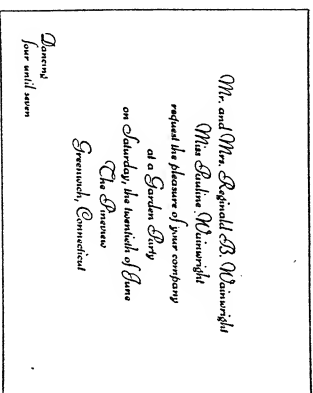 Mr. and Mrs. Reginald B. Wainwright
Miss Pauline Wainwright
request the pleasure of your company
at a Garden Party
on Saturday, the twentieth of June
The Pineview
Greenwich, Connecticut
Dancing
four until seven